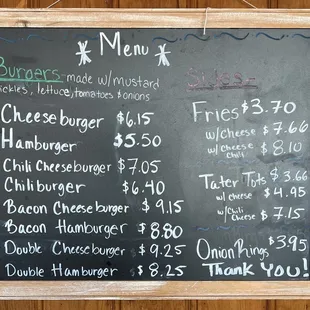 Menu
Burgers - made w/mustard
pickles, lettuce, tomatoes & onions
Cheeseburger $6.15
Hamburger $5.50
Chili Cheeseburger $7.05
Chiliburger $6.40
Bacon Cheeseburger $9.15
Bacon Hamburger $8.80
Double Cheeseburger $9.25
Double Hamburger $8.25
Sides
Fries $3.70
w/cheese $7.66
w/Cheese Chili $8.10
Tater Tots $3.66
w/cheese $4.95
w/Chili Cheese $7.15
Onion Rings $3.95
Thank You!